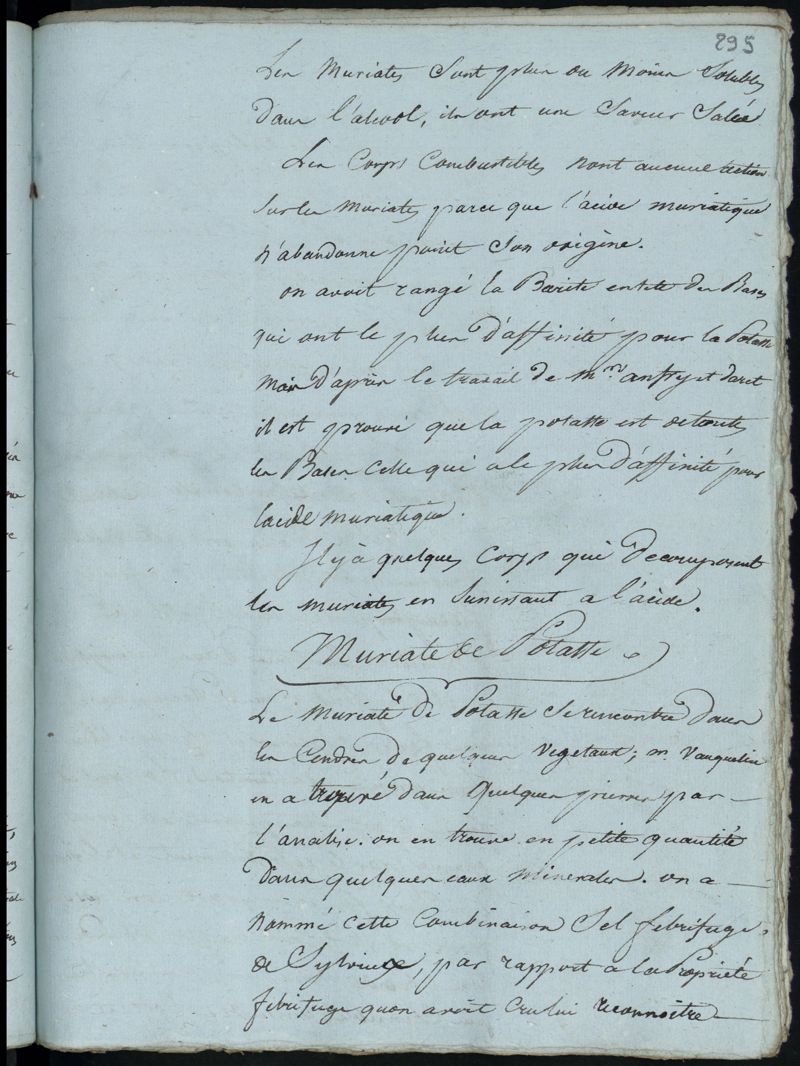 295
Les Muriates sont plus ou moins Solubles
dans l'alcool, ils ont une Saveur Salée
Les Corps Combustibles nont aucune action
sur les Muriates parce que l'acide muriatique
n'abandonne point Son origine.
on avoit rangé la Barite entete des Bases
qui ont le plus d'affinité pour la Potasse
mais d'après le travail de Mrs anfry et darcet
il est prouvé que la potasse est detoutes
les Bases celle qui a le plus d'affinité pour
lacide muriatique.
Il y a quelques Corps qui decomposent
les muriates en Sunissant a l'acide.
Muriate de Potasse
Le Muriate de Potasse Se rencontre dans
les Cendres de quelques Vegetaux; m. Vauquelin
en a trouvé dans Quelques pierres par
l'analise. on en trouve en petite quantité
dans quelques eaux minerales. on a
nommé cette Combinaison Sel febrifuge
de Sylvius, par rapport a la Propriété
febrifuge quon avoit cru lui reconnoitre